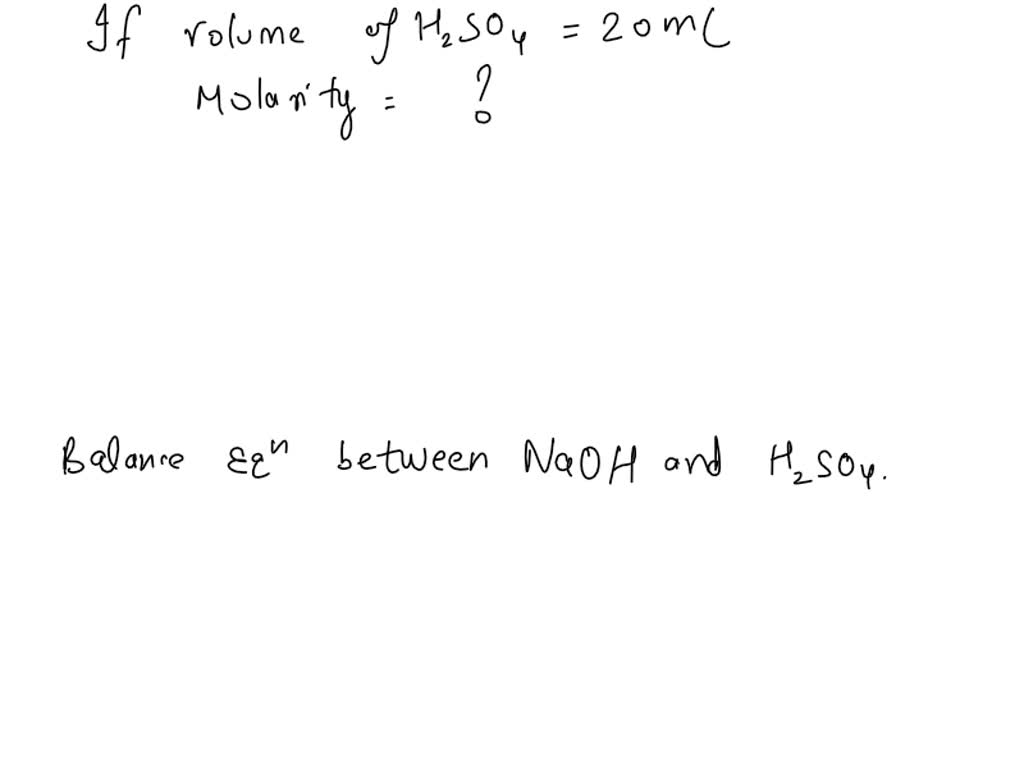 If volume of H₂SO₄ = 20 mL
Molarity = ?
Balance Eqⁿ between NaOH and H₂SO₄.